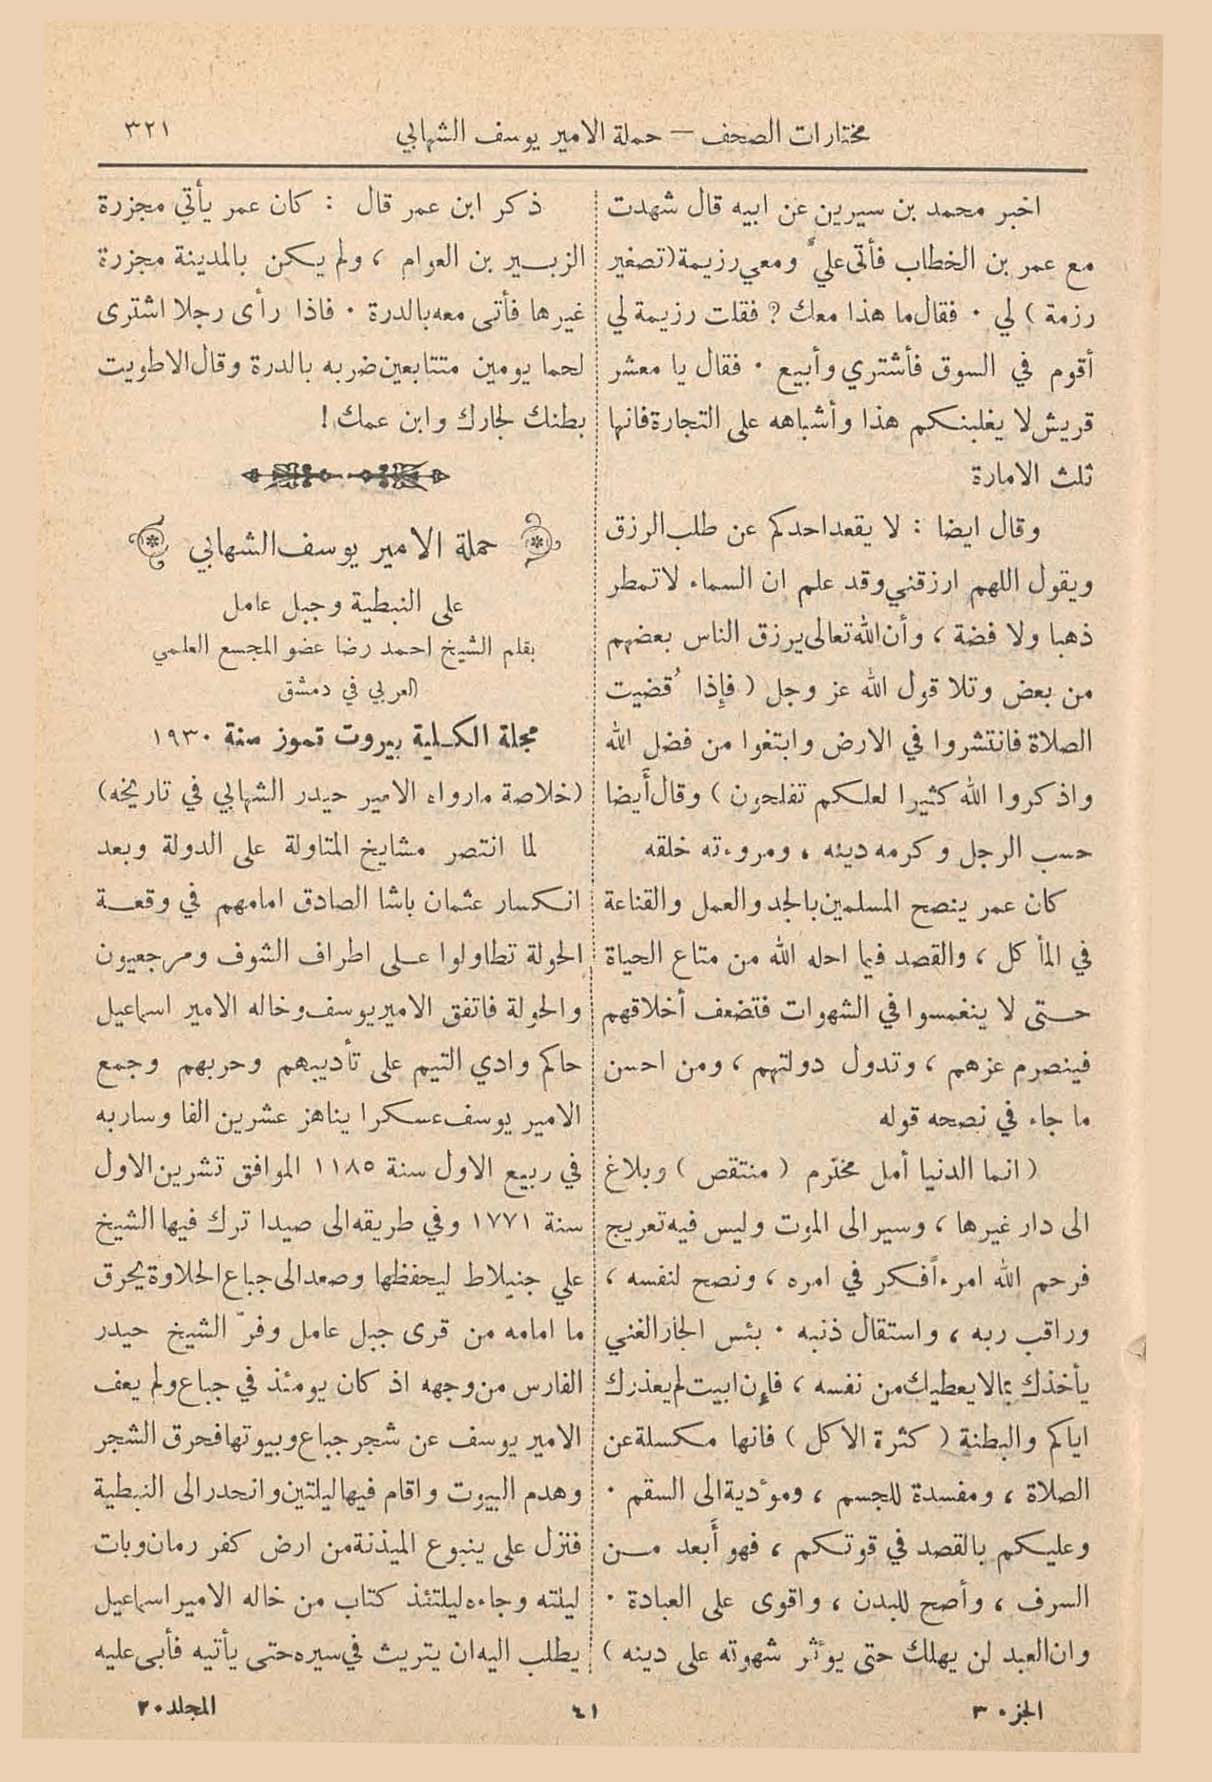 مختارات الصحف — حملة الامير يوسف الشهابي
٣٢١
اخبر محمد بن سيرين عن ابيه قال شهدت
مع عمر بن الخطاب فأتى عليَّ ومعي رزيمة (تصغير
رزمة ) لي ٠ فقال ما هذا معك ? فقلت رزيمة لي
أقوم في السوق فأشتري وأبيع ٠ فقال يا معشر
قريش لا يغلبنكم هذا وأشباهه على التجارة فانها
ثلث الامارة
وقال ايضا : لا يقعد احدكم عن طلب الرزق
ويقول اللهم ارزقني وقد علم ان السماء لا تمطر
ذهبا ولا فضة ، وأن الله تعالى يرزق الناس بعضهم
من بعض وتلا قول الله عز وجل ( فإِذا قُضيت
الصلاة فانتشروا في الارض وابتغوا من فضل الله
واذكروا الله كثيرا لعلكم تفلحون ) وقال أَيضا
حسب الرجل وكرمه دينه ، ومروءته خلقه
كان عمر ينصح المسلمين بالجد والعمل والقناعة
في المأكل ، والقصد فيما احله الله من متاع الحياة
حتى لا ينغمسوا في الشهوات فتضعف أخلاقهم
فينصرم عزهم ، وتدول دولتهم ، ومن احسن
ما جاء في نصحه قوله
( انما الدنيا أمل مخترم ( منتقص ) وبلاغ
الى دار غيرها ، وسير الى الموت وليس فيه تعريج
فرحم الله امرءاً فكر في امره ، ونصح لنفسه ،
وراقب ربه ، واستقال ذنبه ٠ بئس الجار الغني
يأخذك بما لا يعطيك من نفسه ، فإِن ابيت لم يعذرك
اياكم والبطنة ( كثرة الاكل ) فانها مكسلة عن
الصلاة ، ومفسدة للجسم ، ومؤدية الى السقم ٠
وعليكم بالقصد في قوتكم ، فهو أَبعد من
السرف ، وأصح للبدن ، واقوى على العبادة ٠
وان العبد لن يهلك حتى يؤثر شهوته على دينه )
ذكر ابن عمر قال : كان عمر يأتي مجزرة
الزبير بن العوام ، ولم يكن بالمدينة مجزرة
غيرها فأتى معه بالدرة ٠ فاذا رأى رجلا اشترى
لحما يومين متتابعين ضربه بالدرة وقال الاطويت
بطنك لجارك وابن عمك !
حملة الامير يوسف الشهابي
على النبطية وجبل عامل
بقلم الشيخ احمد رضا عضو المجمع العلمي
العربي في دمشق
مجلة الكلية بيروت تموز سنة ١٩٣٠
(خلاصة مارواه الامير حيدر الشهابي في تاريخه)
لما انتصر مشايخ المتاولة على الدولة وبعد
انكسار عثمان باشا الصادق امامهم في وقعة
الحولة تطاولوا على اطراف الشوف ومرجعيون
والحولة فاتفق الامير يوسف وخاله الامير اسماعيل
حاكم وادي التيم على تأديبهم وحربهم وجمع
الامير يوسف عسكرا يناهز عشرين الفا وساربه
في ربيع الاول سنة ١١٨٥ الموافق تشرين الاول
سنة ١٧٧١ وفي طريقه الى صيدا ترك فيها الشيخ
علي جنبلاط ليحفظها وصعد الى جباع الحلاوة يحرق
ما امامه من قرى جبل عامل وفرّ الشيخ حيدر
الفارس من وجهه اذ كان يومئذ في جباع ولم يعف
الامير يوسف عن شجر جباع وبيوتها فحرق الشجر
وهدم البيوت واقام فيها ليلتين وانحدر الى النبطية
فنزل على ينبوع الميذنة من ارض كفر رمان وبات
ليلته وجاءه ليلتئذ كتاب من خاله الامير اسماعيل
يطلب اليه ان يتريث في سيره حتى يأتيه فأبى عليه
الجزء ٣
٤١
المجلد ٢٠